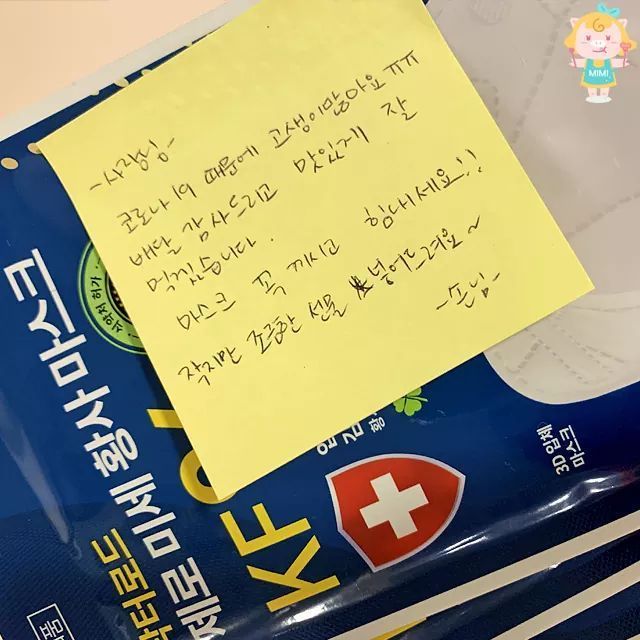 -사장님-
코로나19 때문에 고생이많아요 ㅠㅠ
배달 감사드리고 맛있게 잘
먹겠습니다.
마스크 꼭 끼시고 힘내세요!!
작지만 조그만한 선물 넣어드려요~
-손님-
MIMI
식약처 허가
닥터로드
제로 미세 황사 마스크
KF
3D 입체
마스크